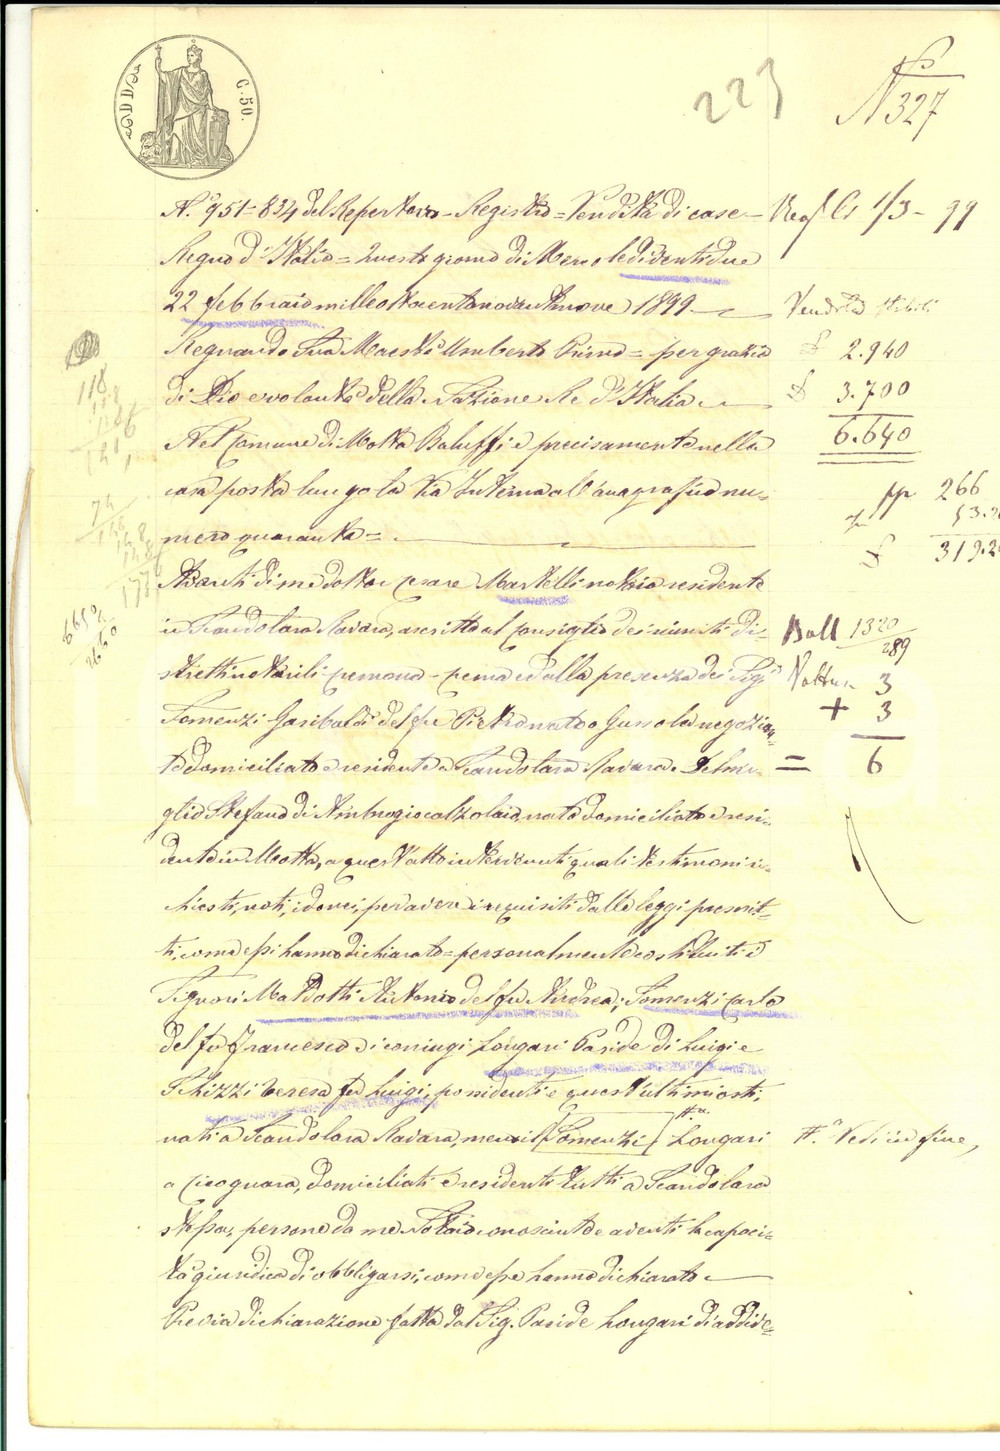 C. 50.
223
N° 327
N.° 951-834 del Repertorio - Registro = Vendita di case -
Regno d'Italia = Questo giorno di Mercoledì ventidue
22 febbraio milleottocentonovantanove 1899
Regnando Sua Maestà Umberto Primo = per grazia
di Dio e volontà della Nazione Re d'Italia
Nel Comune di Motta Baluffi e precisamente nella
casa posta lungo la Via Interna all'anagrafico nu-
mero quaranta =
Avanti di me dottor Cesare Martelli notaio residente
in Scandolara Ravara, ascritto al Consiglio dei riuniti di-
stretti notarili Cremona - Crema ed alla presenza dei Sigi
Somenzi Garibaldi del fu Pietro nato a Gussola negozian-
te domiciliato e residente a Scandolara Ravara e Delmi-
glio Stefano di Ambrogio calzolaio, nato domiciliato e resi-
dente in Motta, a quest'atto intervenuti quali testimoni ri-
chiesti, noti, idonei, per avere i requisiti dalle leggi prescrit-
ti, come essi hanno dichiarato = personalmente costituiti i
Signori Maldotti Antonio del fu Andrea, Somenzi Carlo
del fu Francesco e i coniugi Longari Paride di Luigi e
Schizzi Teresa fu Luigi, possidenti e quest'ultimi osti,
nati a Scandolara Ravara, meno il [Somenzi] Longari
a Cicognara, domiciliati e residenti tutti a Scandolara
stessa, persone da me Notaio conosciute e aventi la capaci-
tà giuridica di obbligarsi, come esse hanno dichiarato
Previa dichiarazione fatta dal Sig. Paride Longari di addive-
1/3 - 99
Vendita stabili
£ 2.940
£ 3.700
6.640
266
53.20
£ 319.20
Boll 1320
289
Volture 3
+ 3
= 6
A. Vedi in fine,
118